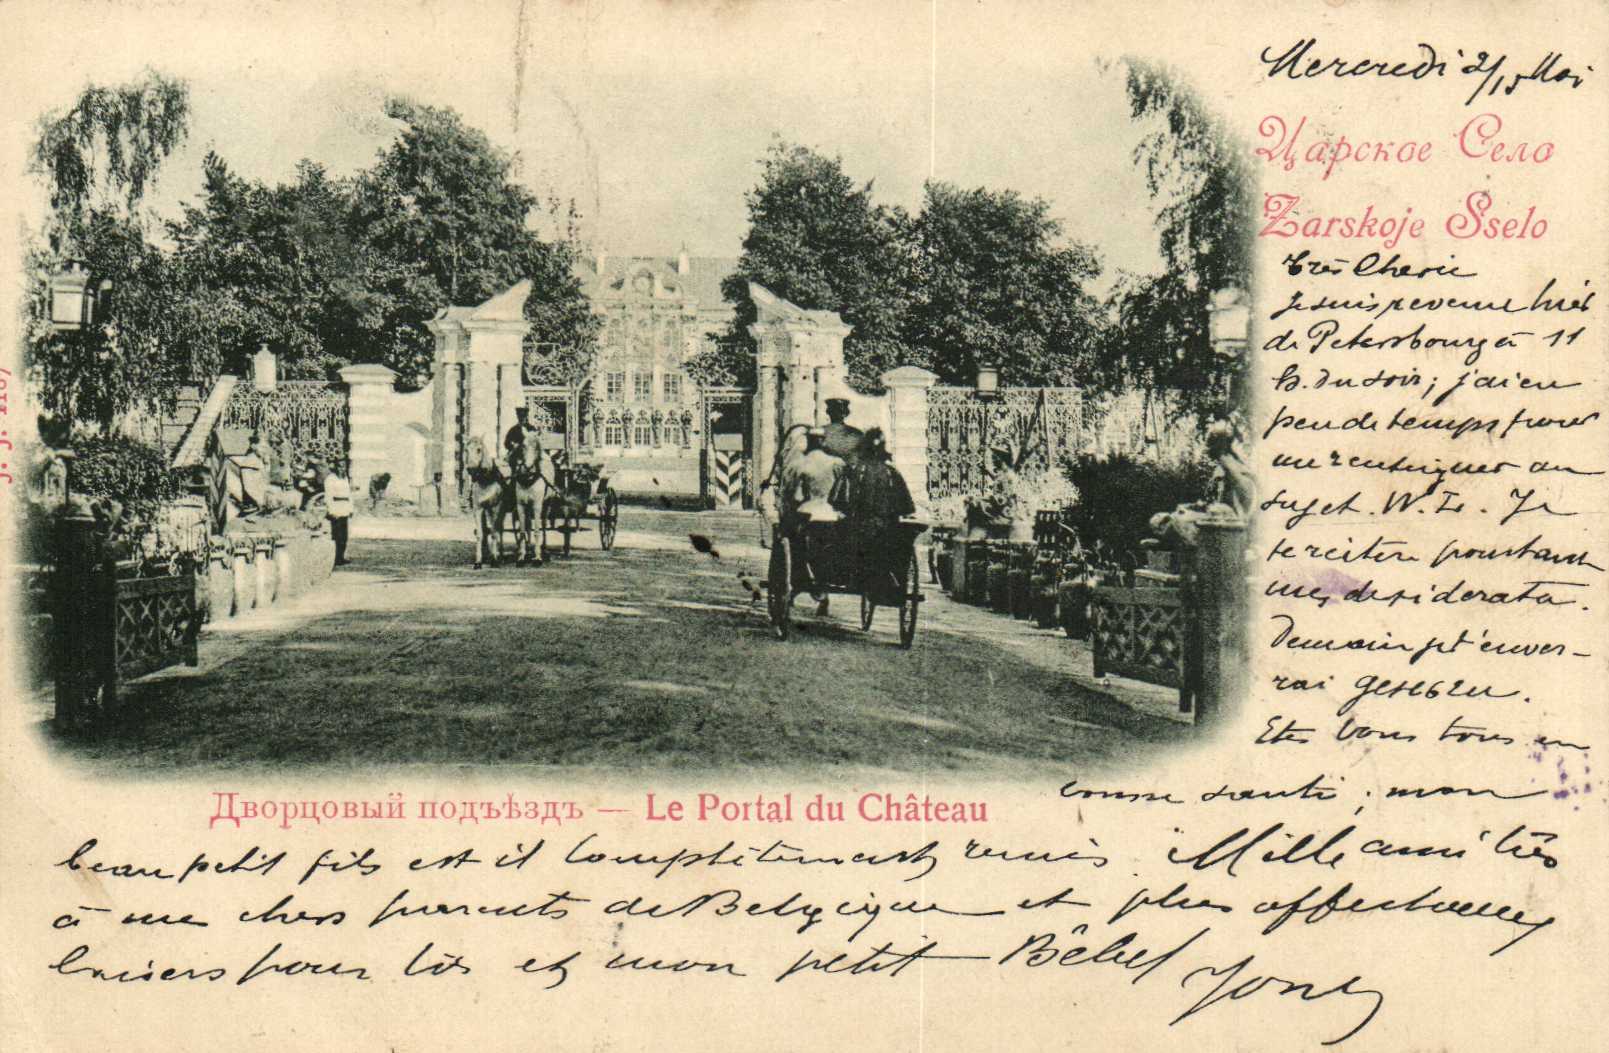 Mercredi 2/15 Mai
Царское Село
Zarskoje Sselo
très Cherie
Je suis revenue hier
de Petersbourg à 11
h. du soir; j'ai eu
peu de temps pour
me renseigner au
sujet. W. L. Je
te reitère pourtant
mes desiderata.
Demain je t'enver-
rai
Etes vous tous en
bonne santé; mon
Дворцовый подъѣздъ — Le Portal du Château
beau petit fils est il complètement remis. Mille amitiés
à me chers parents de Belgique et plus affectueux
baisers pour toi et mon petit Bêbê
J. J. 1187